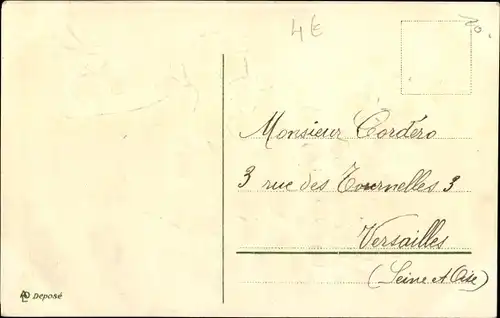 4€
20.
Monsieur Cordéro
3 rue des Tournelles 3
Versailles
(Seine et Oise)
Déposé